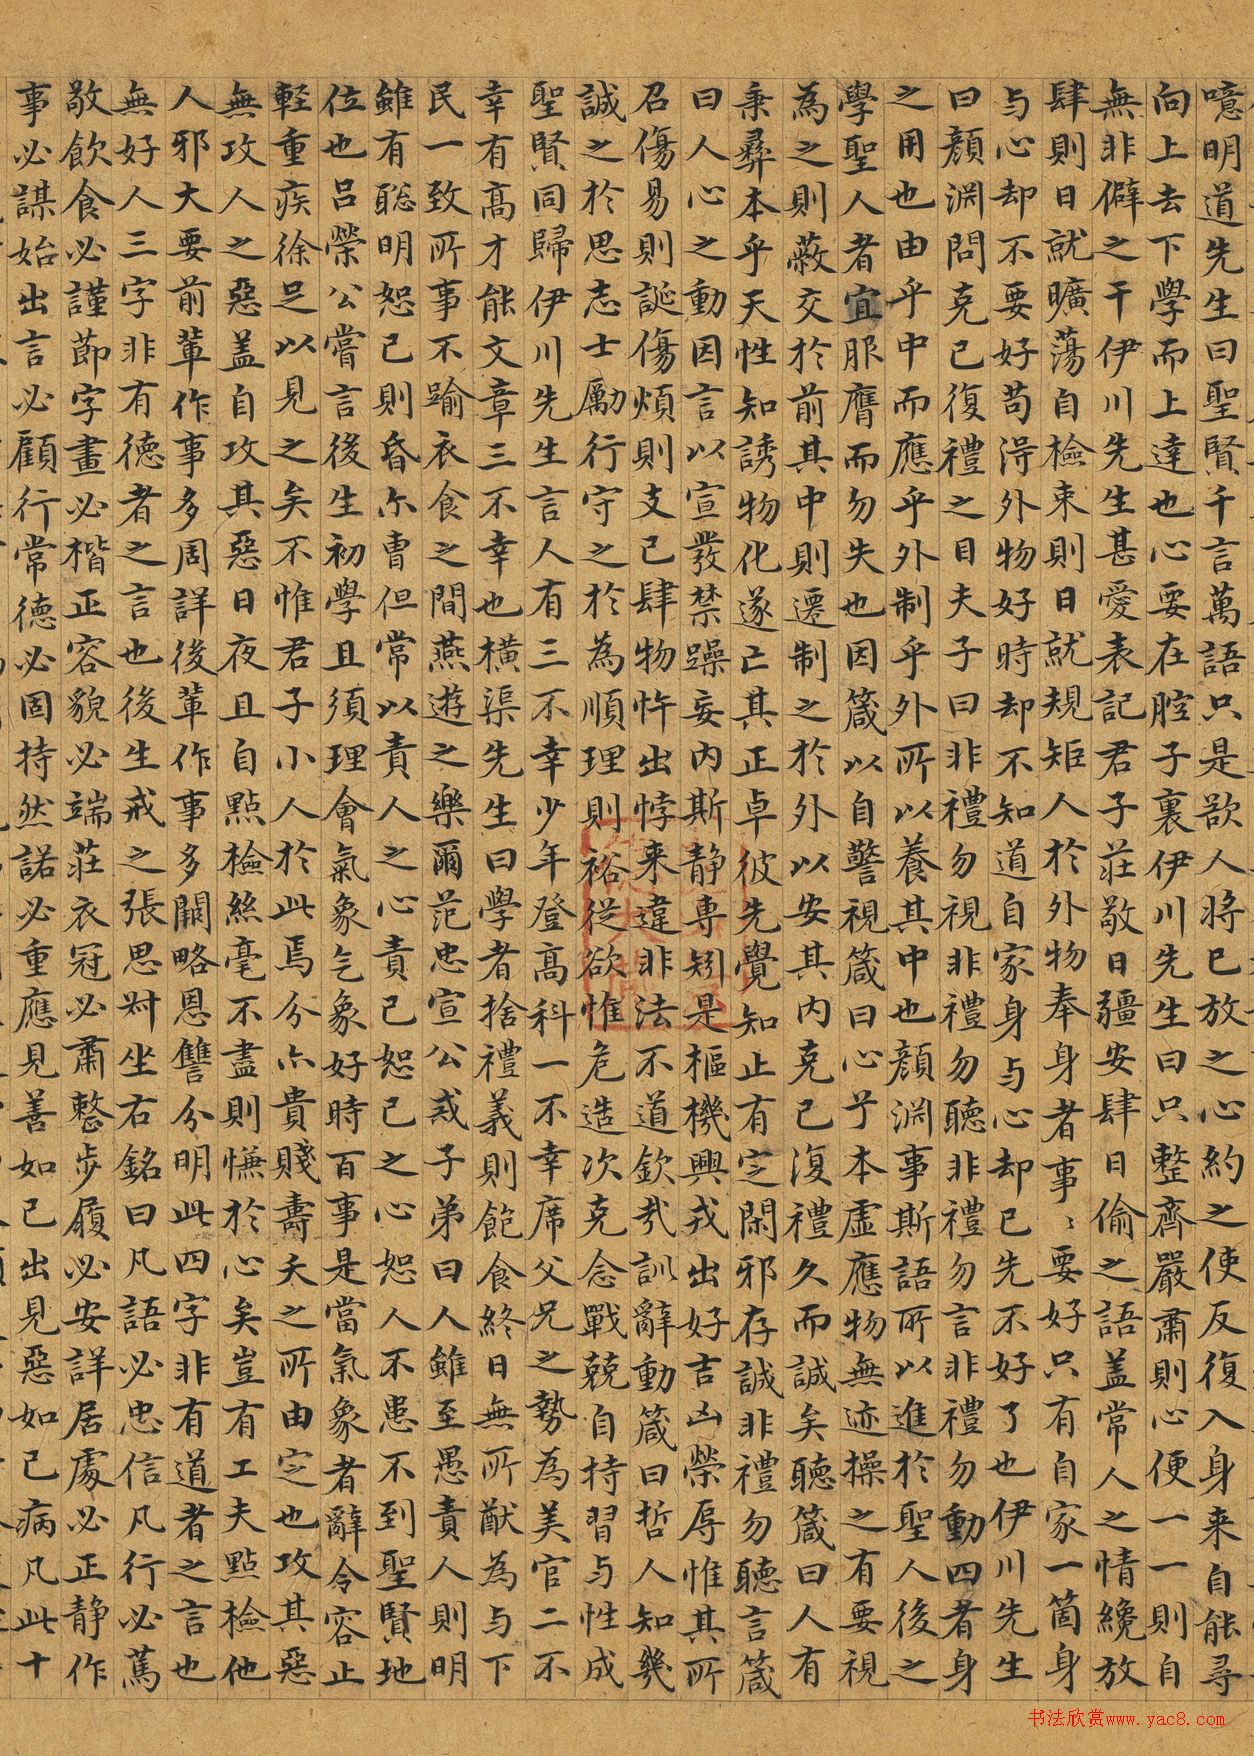 噫明道先生曰聖賢千言萬語只是欲人將已放之心約之使反復入身来自能尋
向上去下學而上達也心要在腔子裏伊川先生曰只整齊嚴肅則心便一一則自
無非僻之干伊川先生甚愛表記君子莊敬日彊安肆日偷之語盖常人之情纔放
肆則日就曠蕩自檢束則日就規矩人於外物奉身者事〻要好只有自家一箇身
与心却不要好苟淂外物好時却不知道自家身与心却已先不好了也伊川先生
曰顔渊問克己復禮之目夫子曰非禮勿視非禮勿聽非禮勿言非禮勿動四者身
之用也由乎中而應乎外制乎外所以養其中也顔渊事斯語所以進於聖人後之
學聖人者宜服膺而勿失也因箴以自警視箴曰心兮本虚應物無迹操之有要視
為之則蔽交於前其中則遷制之於外以安其内克己復禮久而誠矣聽箴曰人有
秉彝本乎天性知誘物化遂亡其正卓彼先覺知止有定閑邪存誠非禮勿聽言箴
曰人心之動因言以宣發禁躁妄内斯静専矧是樞機興戎出好吉凶榮辱惟其所
召傷易則誕傷煩則支己肆物忤出悖来違非法不道欽㢤訓辭動箴曰哲人知幾
誠之於思志士勵行守之於為順理則裕從欲惟危造次克念戰兢自持習与性成
聖賢同歸伊川先生言人有三不幸少年登高科一不幸席父兄之勢為美官二不
幸有高才能文章三不幸也橫渠先生曰學者捨禮義則飽食終日無所猷為与下
民一致所事不踰衣食之間燕遊之樂爾范忠宣公戒子弟曰人雖至愚責人則明
雖有聡明恕己則昏尒曹但常以責人之心責己恕己之心恕人不患不到聖賢地
位也呂榮公嘗言後生初學且須理會氣象氣象好時百事是當氣象者辭令容止
輕重疾徐足以見之矣不惟君子小人於此焉分亦貴賤壽夭之所由定也攻其惡
無攻人之惡盖自攻其惡日夜且自點檢絲毫不盡則慊於心矣豈有工夫點檢他
人邪大要前輩作事多周詳後輩作事多闕略恩讐分明此四字非有道者之言也
無好人三字非有徳者之言也後生戒之張思叔坐右銘曰凡語必忠信凡行必篤
敬飲食必謹節字畫必楷正容貌必端莊衣冠必肅整步履必安詳居處必正静作
事必謀始出言必顧行常德必固持然諾必重應見善如己出見惡如己病凡此十
书法欣赏www.yac8.com